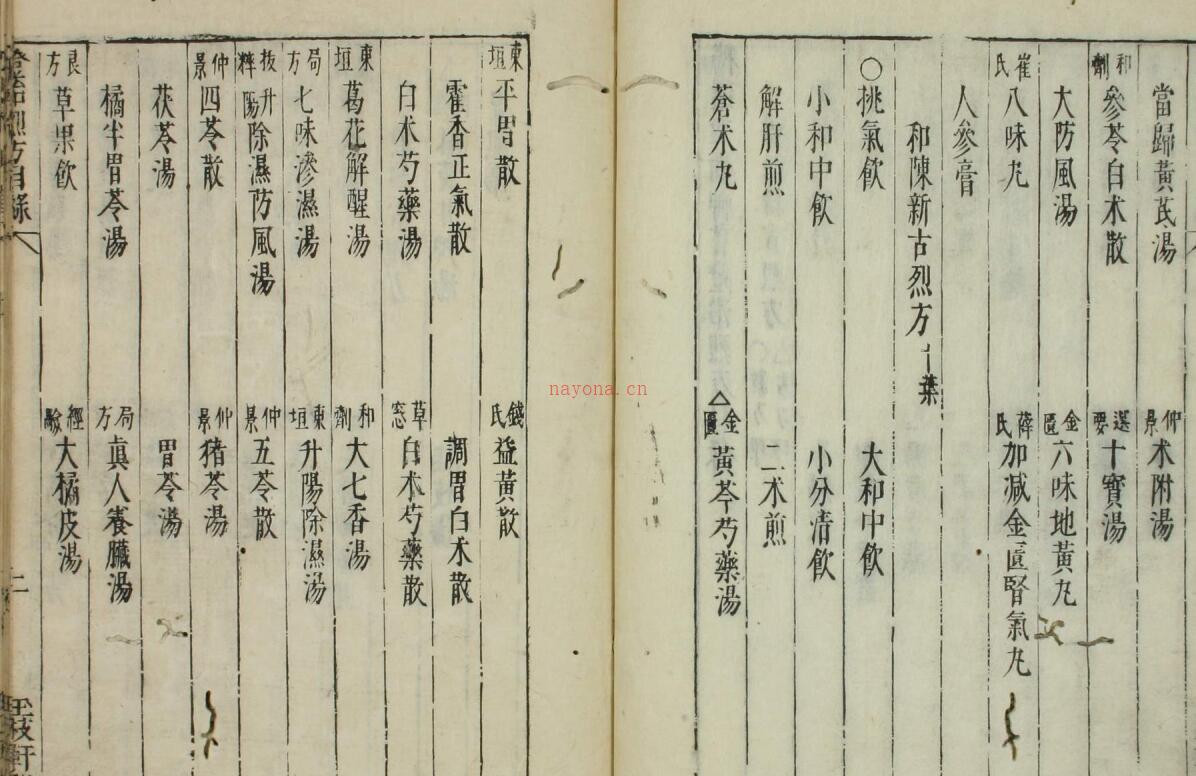 當歸黃芪湯 仲景 术附湯
和劑 參苓白朮散 選要 十寶湯
大防風湯 金匱 六味地黃丸
崔氏 八味丸 薛氏 加減金匱腎氣丸
人參膏
和陳新古烈方 十葉
○桃氣飲 大和中飲
小和中飲 小分清飲
解肝煎 二术煎
蒼术丸 △金匱 黃芩芍藥湯
nayona.cn
東垣 平胃散 錢氏 益黃散
霍香正氣散 調胃白朮散
白术芍藥湯 草窓 白术芍藥散
東垣 葛花解酲湯 和劑 大七香湯
局方 七味滲濕湯 東垣 升陽除濕湯
升陽除濕防風湯 仲景 五苓散
仲景 四苓散 仲景 猪苓湯
茯苓湯 胃苓湯
橘半胃苓湯 局方 真人養臟湯
良方 草果飲 經驗 大橘皮湯
烈方目錄 二 玉枝軒